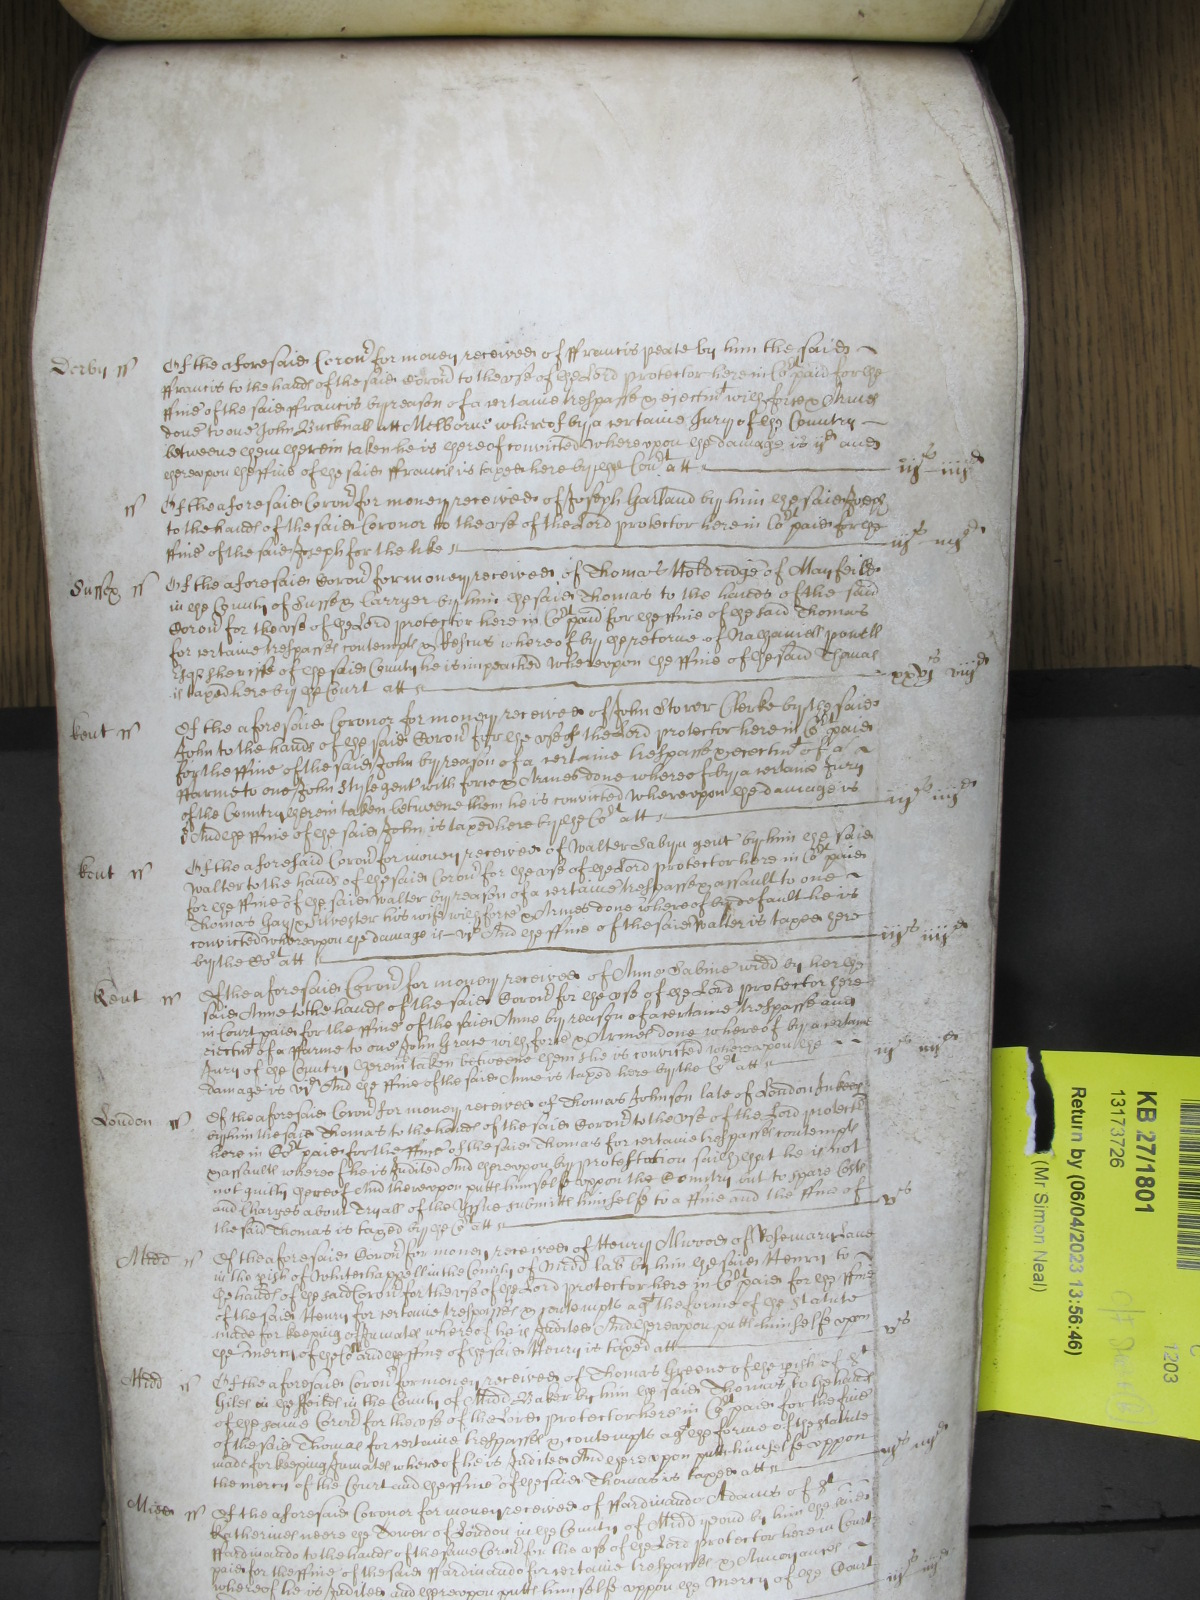 Derby ss Of the aforesaid Coron^r for money received of ffrancis peate by him the said
ffrancis to the hands of the said Coron^r to the use of the Lord protector here in Co^rt paid for the
ffine of the said ffrancis by reason of a certaine trespasse & eiectm^t with force & Armes
done to one John Bucknall att Melborne whereof by a certaine Jury of the Country
betweene them therein taken he is thereof convicted whereupon the damage is ij^d and
thereupon the ffine of the said ffrancis is taxed here by the Co^rt att iij^s iiij^d
ss Of the aforesaid Coron^r for money received of Joseph Garland by him the said Joseph
to the hands of the said Coronor to the use of the Lord protector here in Co^rt paid for the
ffine of the said Joseph for the like iij^s iiij^d
Sussex ss Of the aforesaid Coron^r for money received of Thomas Holdridge of Mayfeild
in the County of Sussex Carryer by him the said Thomas to the hands of the said
Coron^r for the use of the Lord protector here in Co^rt paid for the ffine of the said Thomas
for certaine trespasses contempts & Rescus whereof by the retorne of Nathaniell powell
Esq^r Sheriffe of the said County he is impeached whereupon the ffine of the said Thomas
is taxed here by the Court att xxvj^s viij^d
Kent ss Of the aforesaid Coronor for money received of John Storer Clerke by the said
John to the hands of the said Coron^r for the use of the Lord protector here in Co^rt paid
for the ffine of the said John by reason of a certaine trespasse & eiectm^t of a
ffarme to one John Style gent with force & Armes done whereof by a certaine Jury
of the Country therein taken betweene them he is convicted whereupon the damage is
And the ffine of the said John is taxed here by the Co^rt att iij^s iiij^d
Kent ss Of the aforesaid Coron^r for money received of Walter Sabyn gent by him the said
Walter to the hands of the said Coron^r for the use of the Lord protector here in Co^rt paid
for the ffine of the said Walter by reason of a certaine trespasse & assault to one
Thomas Gay & Silvester his wife with force & Armes done whereof by default he is
convicted whereupon the damage is vj^d And the ffine of the said Walter is taxed here
by the Co^rt att iij^s iiij^d
Kent ss Of the aforesaid Coron^r for money received of Anne Sabine widd by her the
said Anne to the hands of the said Coron^r for the use of the Lord protector here
in Court paid for the ffine of the said Anne by reason of a certaine trespasse and
eiectm^t of a ffarme to one John Grove with force & Armes done whereof by a certaine
Jury of the Country therein taken betweene them she is convicted whereupon the
damage is vj^d And the ffine of the said Anne is taxed here by the Co^rt att iij^s iiij^d
London ss Of the aforesaid Coron^r for money received of Thomas Johnson late of London
by him the said Thomas to the hands of the said Coron^r to the use of the Lord protector
here in Co^rt paid for the ffine of the said Thomas for certaine trespasses contempts
& assaults whereof he is Indited And thereupon by protestacion saith that he is not
not guilty thereof And thereupon putts himselfe uppon the Country but to spare Costs
and Charges about tryall of the Issue submitts himselfe to a ffine and the ffine of
the said Thomas is taxed by the Co^rt att v^s
Midd ss Of the aforesaid Coron^r for money received of Henry Alwood of Rosemary Lane
in the pish of Whitechappell in the County of Midd lab^r by him the said Henry to
the hands of the said Coron^r for the use of the Lord protector here in Co^rt paid for the ffine
of the said Henry for certaine trespasses & contempts ag^t the forme of the statute
made for keeping of Inmates whereof he is Indited And thereupon putts himselfe upon
the mercy of the Co^rt and the ffine of the said Henry is taxed att v^s
Midd ss Of the aforesaid Coron^r for money received of Thomas Greene of the pish of S^t
Giles in the ffeilds in the County of Midd Baker by him the said Thomas to the hands
of the same Coron^r for the use of the Lord protector here in Co^rt paid for the fine
of the said Thomas for certaine trespasses & contempts ag^t the forme of the statute
made for keeping Inmates whereof he is Indited And thereupon putts himselfe uppon
the mercy of the Court and the ffine of the said Thomas is taxed att iij^s iiij^d
Midd ss Of the aforesaid Coronor for money received of ffardinando Adams of S^t
Katherines neere the Tower of London in the County of Midd by him the said
ffardinando to the hands of the same Coron^r for the use of the Lord protector here in Court
paid for the ffine of the said ffardinando for certaine trespasses & Annoyances
whereof he is Indited and thereupon putts himselfe uppon the mercy of the Court iij^s iiij^d
KB 27/1801
13173726
Return by (06/04/2023 13:56:46)
(Mr Simon Neal)
1203